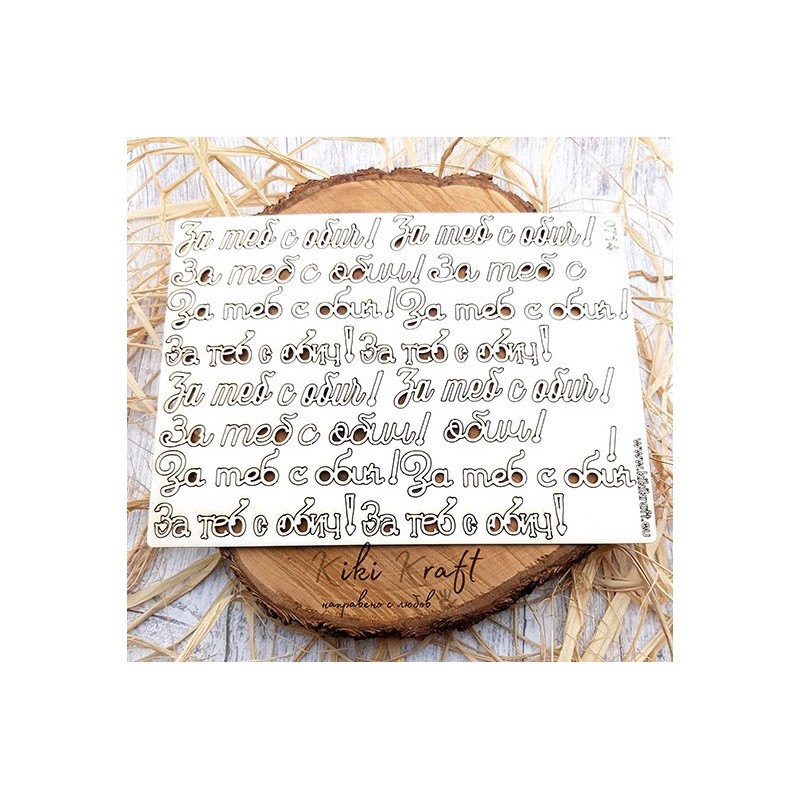 За теб с обич! За теб с обич!
За теб с обич! За теб с
За теб с обич! За теб с обич!
За теб с обич! За теб с обич!
За теб с обич! За теб с обич!
За теб с обич! обич!
За теб с обич! За теб с обич!
За теб с обич! За теб с обич!
Kiki Kraft
направено с любов